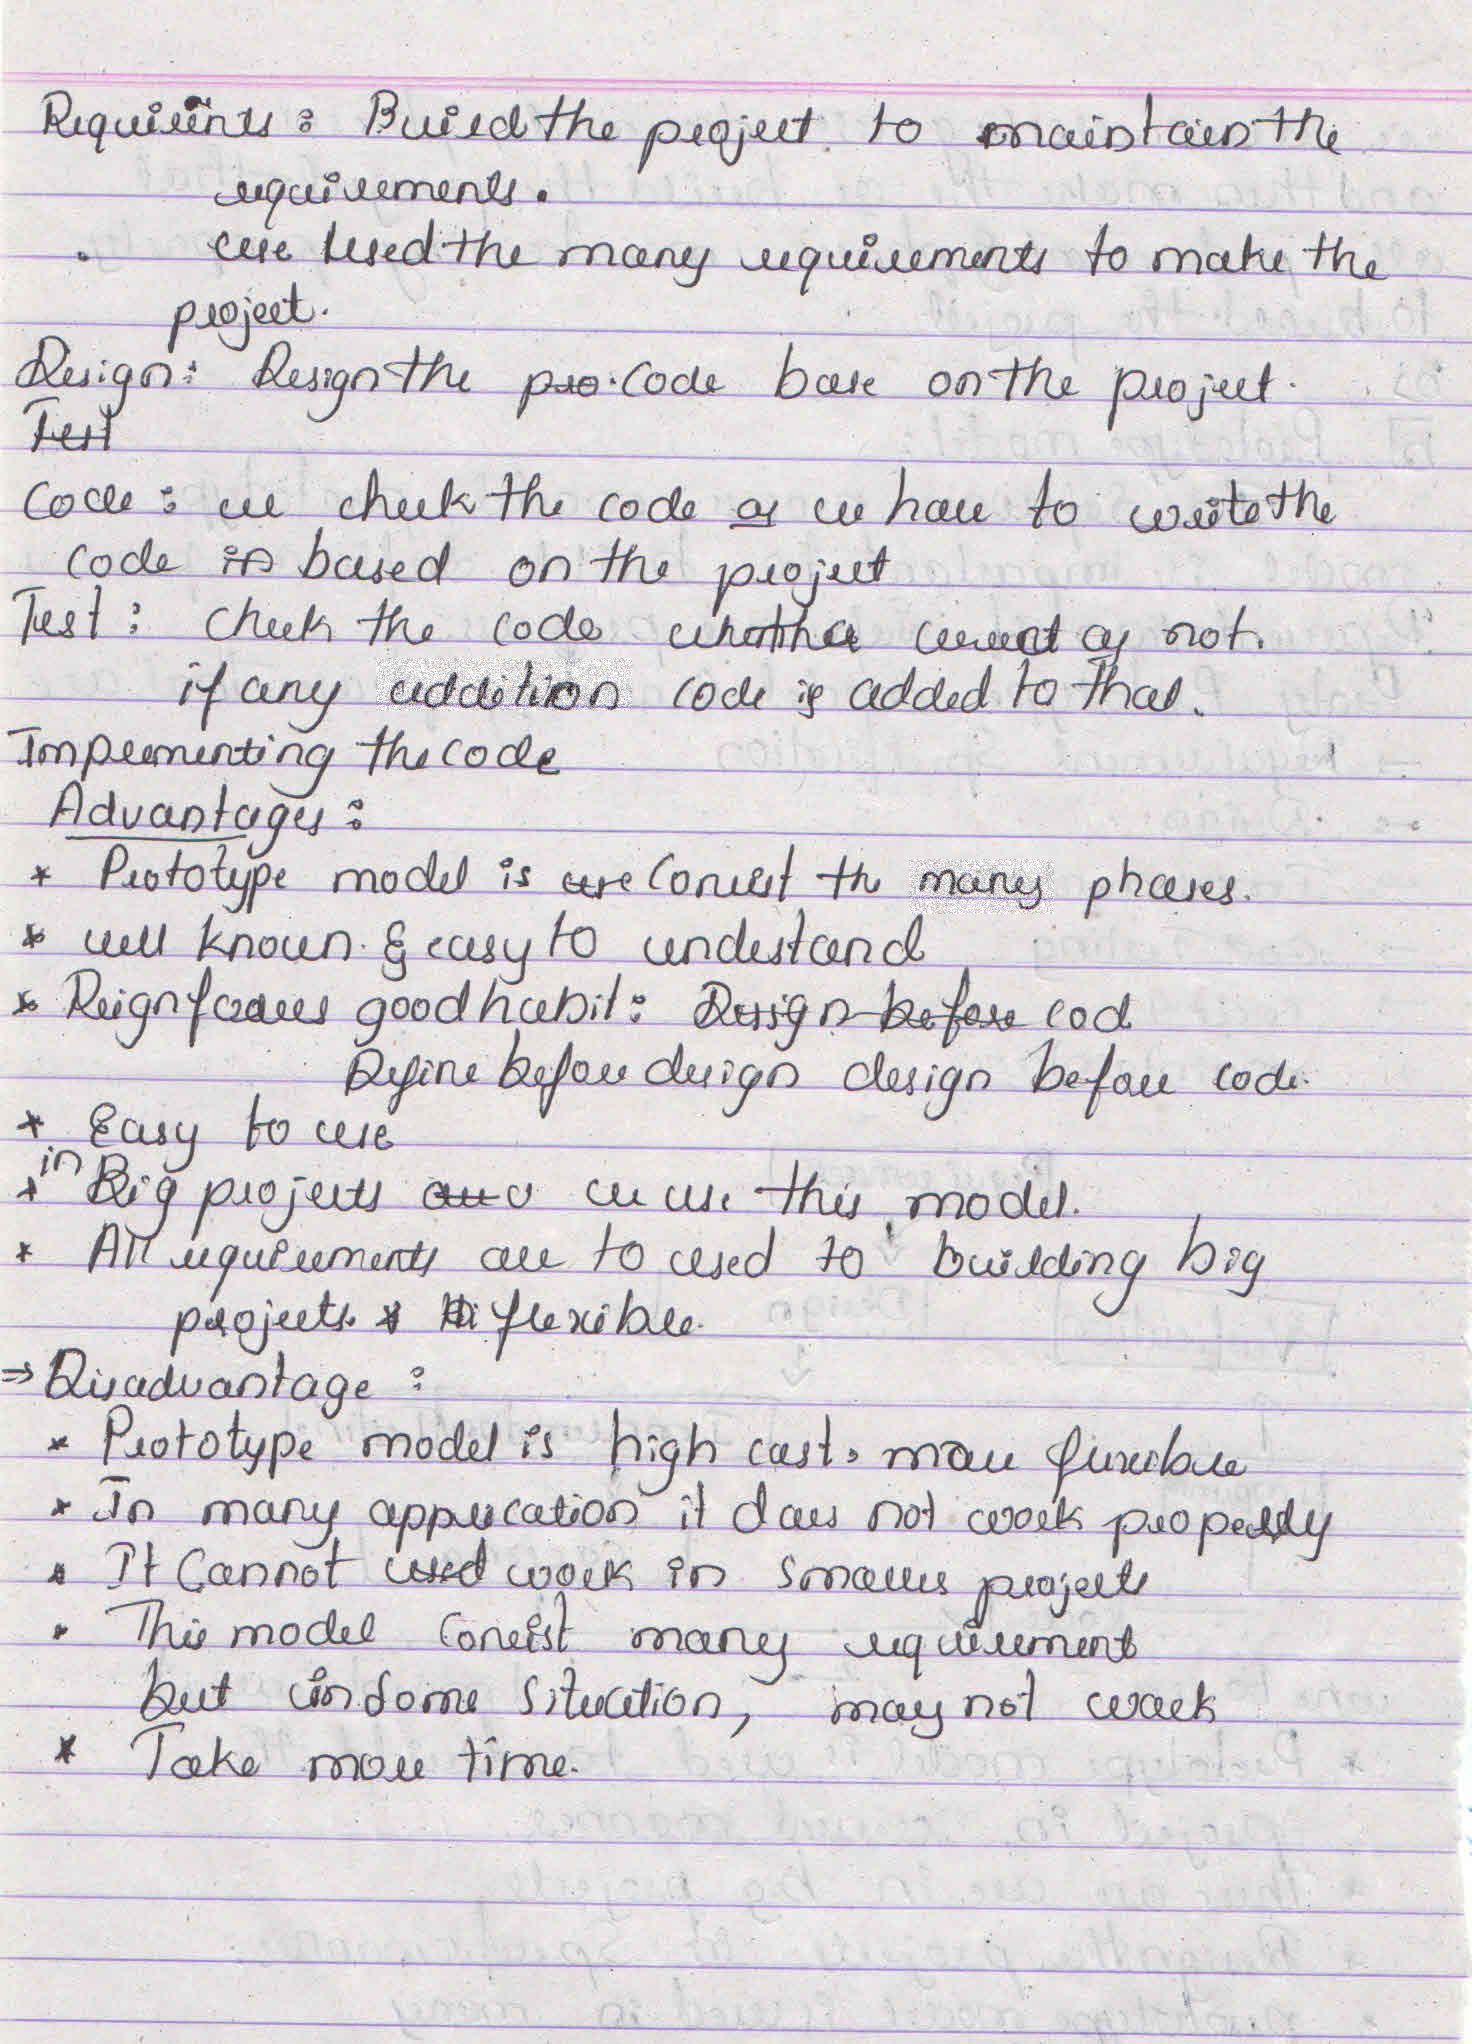 Requirints : Build the project to maintain the
requirements.
. use used the many requirements to make the
project.
Design : Design the pro. code base on the project.
Test
Code : we check the code as we have to write the
code in based on the project
Test : check the code whether correct or not.
if any addition code is added to that.
Implementing the code
Advantages :
* Prototype model is are consist the many phases.
* well known & easy to understand
* Reignforces good habit : Design before cod
Define before design design before code.
* Easy to use
* in Big projects we use this model.
* All requirements are to used to building big
projects. * flexible.
⇒ Disadvantage :
* Prototype model is high cast. more flexible
* In many application it does not work properly
* It Cannot used work in smaller projects
* This model consist many requirement
but in some situation, may not work
* Take more time.